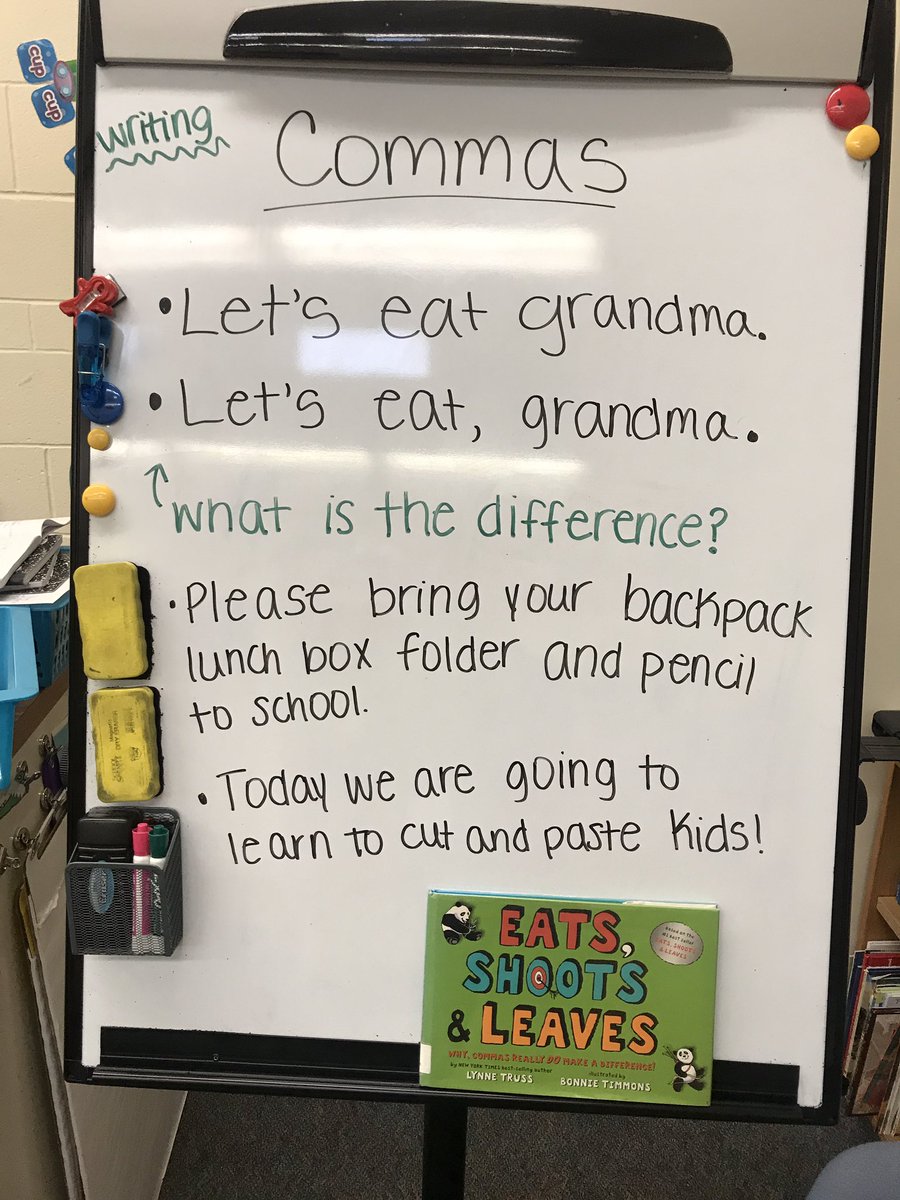 cup
cup
writing
Commas
• Let's eat grandma.
• Let's eat, grandma.
↑ What is the difference?
• Please bring your backpack
lunch box folder and pencil
to school.
• Today we are going to
learn to cut and paste kids!
EATS,
SHOOTS
& LEAVES
based on the
#1 best seller
EATS, SHOOTS
& LEAVES
WHY, COMMAS REALLY DO MAKE A DIFFERENCE!
by NEW YORK TIMES best-selling author
LYNNE TRUSS
illustrated by
BONNIE TIMMONS